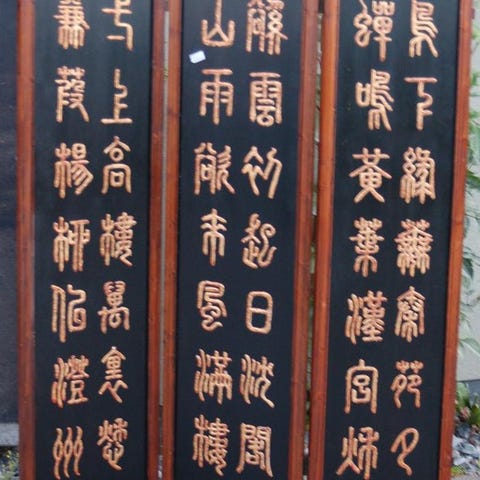 一上高樓萬裏愁
蒹葭楊柳似澄州
谿雲初起日沈閣
山雨欲來風滿樓
鳥下綠蕪秦苑夕
蟬鳴黃葉漢宮秋